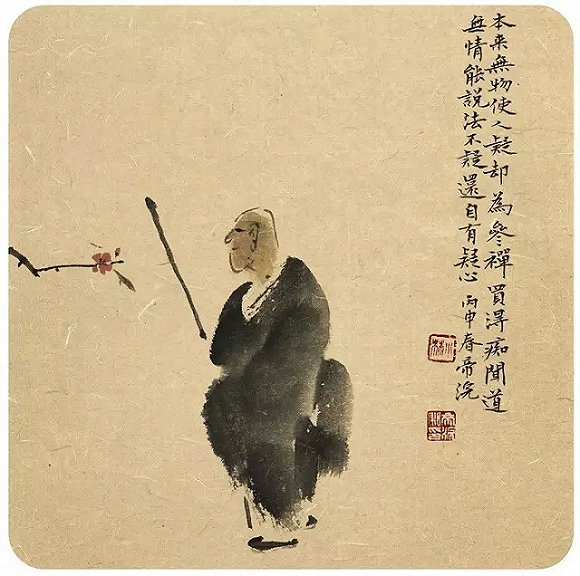 本来無物使人疑却為參禪買得痴聞道
無情能說法不疑還自有疑心 丙申春帝浣